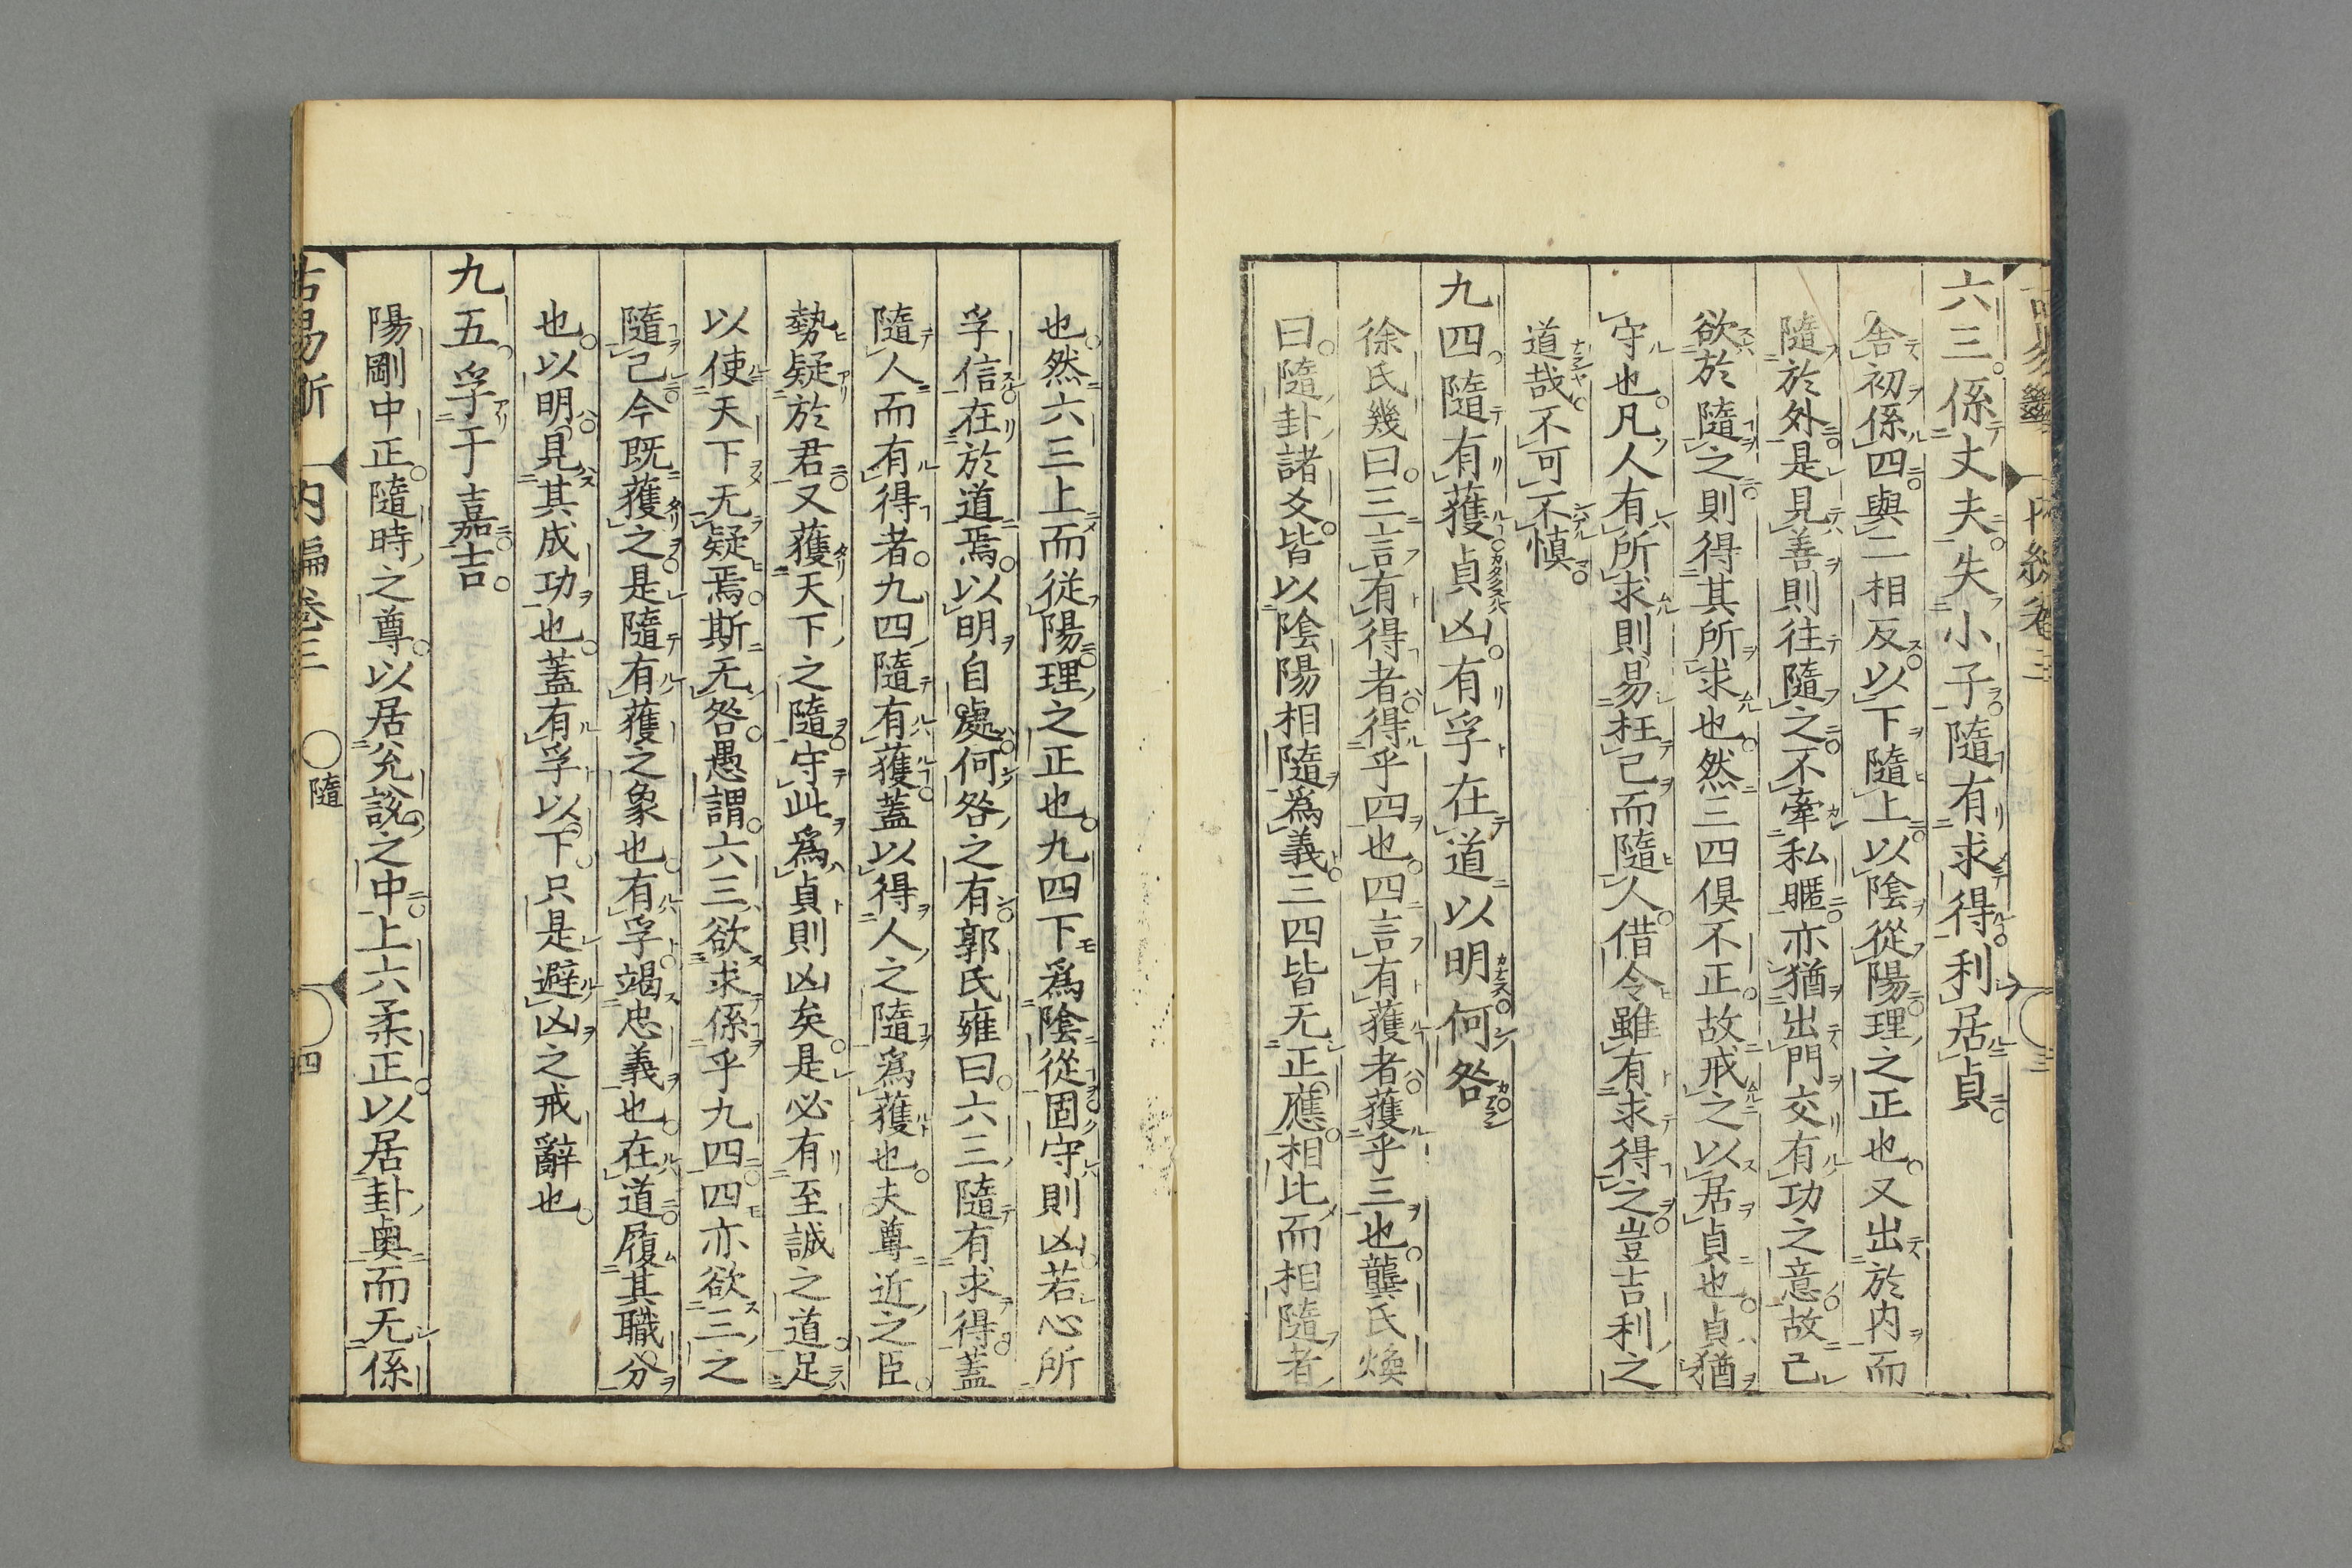 六三。係丈夫。失小子。隨有求得。利居貞。
舍初係四。與二相反。以下隨上。以陰從陽理之正也。又出於内而
隨於外。是見善則往隨之。不牽私暱。亦猶出門交有功之意。故己
欲於隨之。則得其所求也。然三四俱不正。故戒之以居貞也。貞猶
守也。凡人有所求則易枉己而隨人。借令雖有求得之。豈吉利之
道哉。不可不慎。
九四。隨有獲。貞凶。有孚在道以明。何咎。
徐氏幾曰。三言有得者。得乎四也。四言有獲者。獲乎三也。龔氏煥
曰。隨卦諸爻。皆以陰陽相隨爲義。三四皆无正應。相比而相隨者
也。然六三上而從陽。理之正也。九四下爲陰從。固守則凶。若心所
孚信在於道焉。以明自處。何咎之有。郭氏雍曰。六三隨有求得。蓋
隨人而有得者。九四隨有獲。蓋以得人之隨爲獲也。夫尊近之臣。
勢疑於君。又獲天下之隨。守此爲貞則凶矣。是必有至誠之道。足
以使天下无疑焉。斯无咎。愚謂。六三欲求係乎九四。四亦欲三之
隨己。今既獲之。是隨有獲之象也。有孚。竭忠義也。在道。履其職分
也。以明。見其成功也。蓋有孚以下。只是避凶之戒辭也。
九五。孚于嘉。吉。
陽剛中正。隨時之尊。以居兌說之中。上六柔正。以居卦奥而无係
古易斷
内編卷三
隨
四